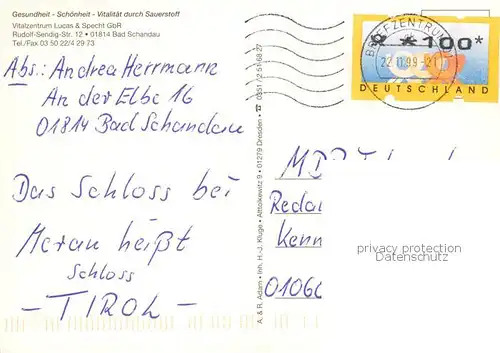 Gesundheit - Schönheit - Vitalität durch Sauerstoff
Vitalzentrum Lucas & Specht GbR
Rudolf-Sendig-Str. 12 • 01814 Bad Schandau
Tel./Fax 03 50 22/4 29 73
Abs.: Andrea Herrmann
An der Elbe 16
01814 Bad Schandau
Das Schloss bei
Meran heißt
Schloss
- TIROL -
A. & R. Adam • Inh. H.-J. Kluge • Alttolkewitz 9 • 01279 Dresden • ☎ 0351 / 2 51 68 27
BRIEFZENTRUM
22.11.99-21
*100*
DEUTSCHLAND
Reda
Kenn
0106
privacy protection
Datenschutz